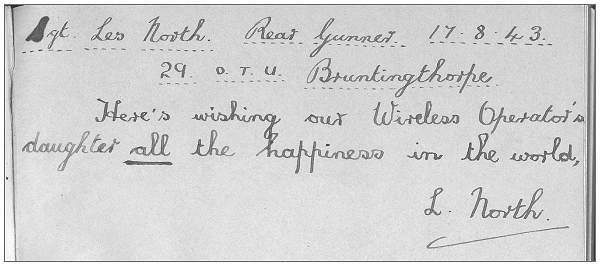 Sgt. Les North. Rear Gunner. 17.8.43.
29. O.T.U. Bruntingthorpe
Here's wishing our Wireless Operator's
daughter all the happiness in the world,
L. North.